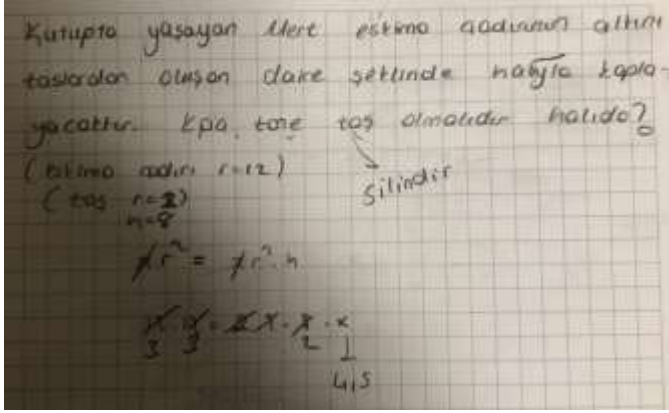 Kutupta yaşayan Mert eskimo çadırının altını
taslardan oluşan daire şeklinde halıyla kapla-
yacaktır. Kaç tane taş olmalıdır halıda?
(Eskimo çadırı r=12)
Silindir
(taş r=2)
h=8
r² = r².h
3 3 2 1
4,5